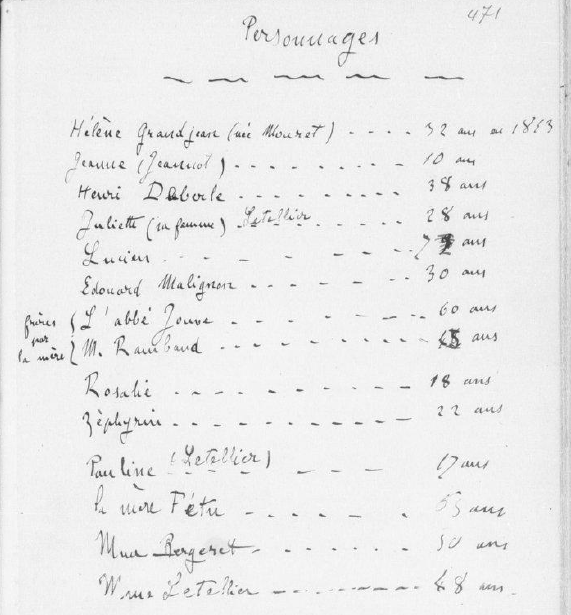 471
Personnages
Hélène Grandjean (née Mouret) .... 32 ans en 1853
Jeanne (Jeannot) ........ 10 ans
Henri Deberle ......... 38 ans
Juliette (sa femme) Letellier ..... 28 ans
Lucien ........ 7 ans
Edouard Malignon ....... 30 ans
frères par la mère { L'abbé Jouve ....... 60 ans
M. Rambaud ........ 45 ans
Rosalie ......... 18 ans
Zéphyrin .......... 22 ans
Pauline (Letellier) ..... 17 ans
la mère Fétu ...... ans
Mme Bergeret ....... 50 ans
Mme Letellier ........ 48 ans